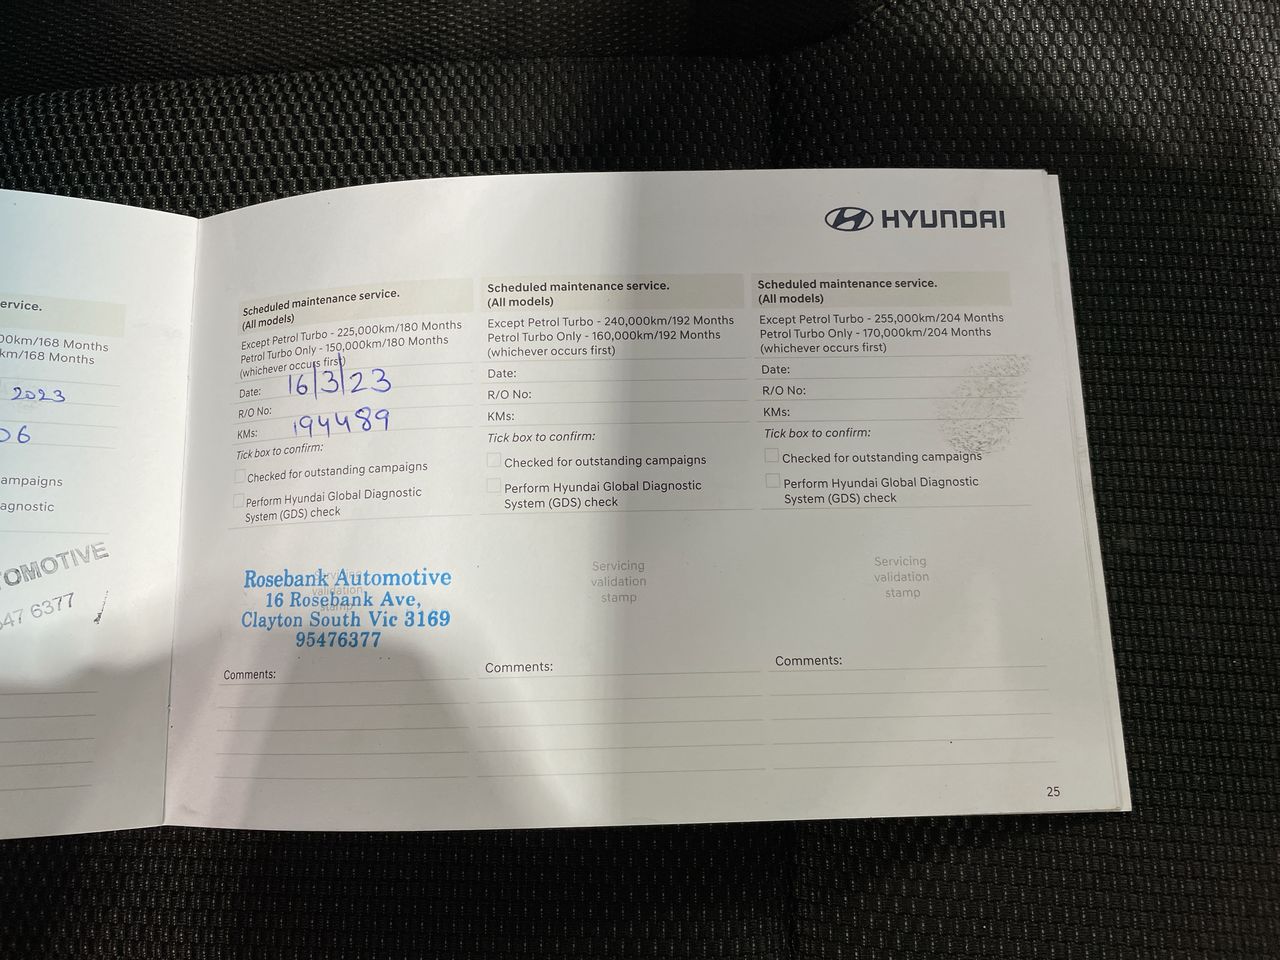 ervice.
00km/168 Months
km/168 Months
2023
06
ampaigns
agnostic
TOMOTIVE
547 6377
HYUNDAI
Scheduled maintenance service.
(All models)
Except Petrol Turbo - 225,000km/180 Months
Petrol Turbo Only - 150,000km/180 Months
(whichever occurs first)
Date: 16/3/23
R/O No:
KMs: 194489
Tick box to confirm:
Checked for outstanding campaigns
Perform Hyundai Global Diagnostic
System (GDS) check
Servicing
validation
stamp
Rosebank Automotive
16 Rosebank Ave,
Clayton South Vic 3169
95476377
Comments:
Scheduled maintenance service.
(All models)
Except Petrol Turbo - 240,000km/192 Months
Petrol Turbo Only - 160,000km/192 Months
(whichever occurs first)
Date:
R/O No:
KMs:
Tick box to confirm:
Checked for outstanding campaigns
Perform Hyundai Global Diagnostic
System (GDS) check
Servicing
validation
stamp
Comments:
Scheduled maintenance service.
(All models)
Except Petrol Turbo - 255,000km/204 Months
Petrol Turbo Only - 170,000km/204 Months
(whichever occurs first)
Date:
R/O No:
KMs:
Tick box to confirm:
Checked for outstanding campaigns
Perform Hyundai Global Diagnostic
System (GDS) check
Servicing
validation
stamp
Comments:
25